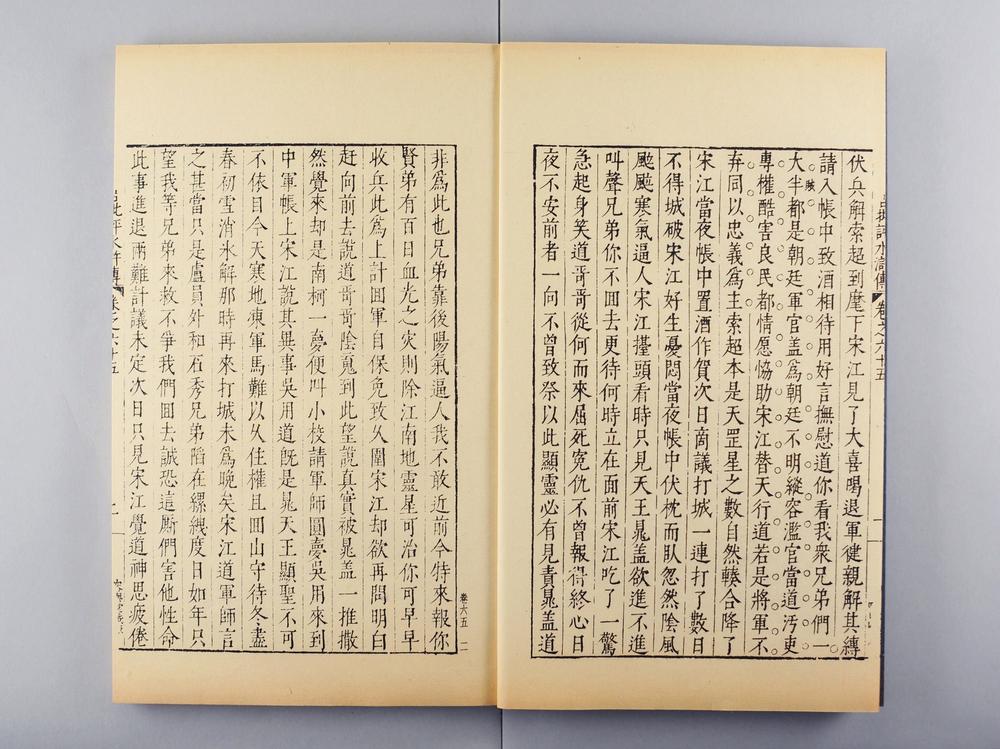 伏兵解索超到麾下宋江見了大喜喝退軍健親解其縛
請入帳中致酒相待用好言撫慰道你看我衆兄弟們一
大半都是朝廷軍官盖爲朝廷不明縱容濫官當道汚吏
專權酷害良民都情愿恊助宋江替天行道若是將軍不
弃同以忠義爲主索超本是天罡星之數自然輳合降了
宋江當夜帳中置酒作賀次日商議打城一連打了數日
不得城破宋江好生憂悶當夜帳中伏枕而臥忽然陰風
颭颭寒氣逼人宋江擡頭看時只見天王晁盖欲進不進
叫聲兄弟你不回去更待何時立在面前宋江吃了一驚
急起身笑道哥哥從何而來屈死寃仇不曾報得終心日
夜不安前者一向不曾致祭以此顯靈必有見責晁盖道
非爲此也兄弟靠後陽氣逼人我不敢近前今特來報你
賢弟有百日血光之灾則除江南地靈星可治你可早早
收兵此爲上計回軍自保免致久圍宋江却欲再問明白
赶向前去說道哥哥陰䰟到此望說真實被晁盖一推撒
然覺來却是南柯一夢便叫小校請軍師圓夢吳用來到
中軍帳上宋江說其異事吳用道既是晁天王顯聖不可
不依目今天寒地凍軍馬難以久住權且回山守待冬盡
春初雪消氷解那時再來打城未爲晚矣宋江道軍師言
之甚當只是盧員外和石秀兄弟䧟在縲絏度日如年只
望我等兄弟來救不爭我們回去誠恐這厮們害他性命
此事進退兩難計議未定次日只見宋江覺道神思疲倦
卷六五 二
批評水滸傳 卷之六十五